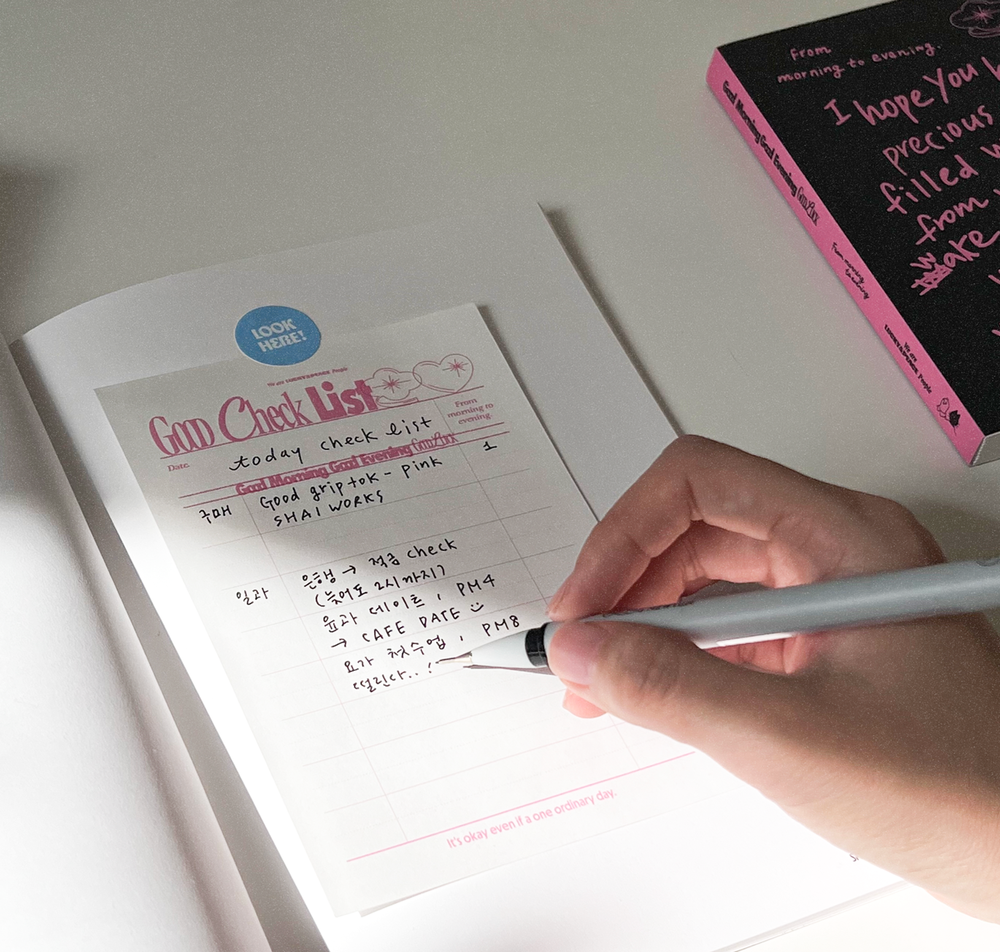 From
morning to evening.
I hope You
precious
filled
from
Make
Good Morning Good Evening Good Luck
From morning
to evening
We are
LUCKY&PEACE People
LOOK
HERE!
We are LUCKY&PEACE People
Good Check List
From
morning to
evening.
Date.
today check list
Good Morning Good Evening Good Luck
1
구매
Good griptok - pink
SHAI WORKS
일과
은행 → 적금 check
(늦어도 2시까지?)
윤과 데이트, PM4
→ CAFE DATE
요가 첫수업, PM8
떨린다..!
It's okay even if a one ordinary day.